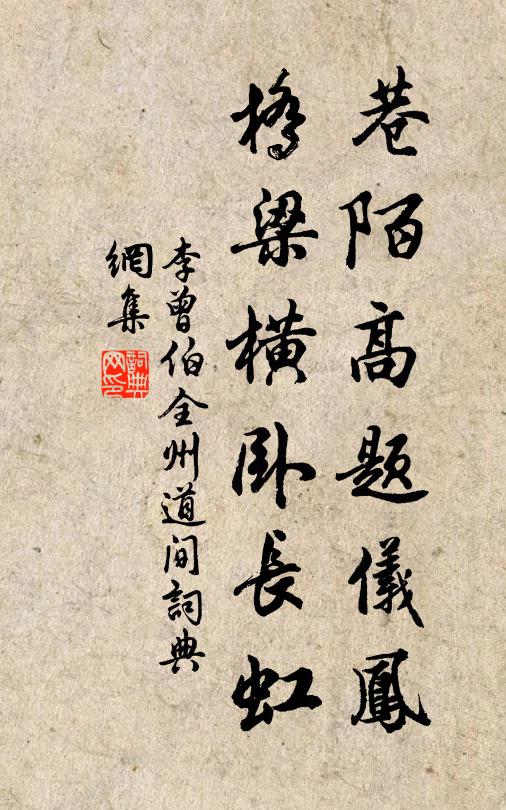 巷陌高题儀鳳
橋梁橫卧長虹
李曾伯全州道间詞典
網集
詞典
网印